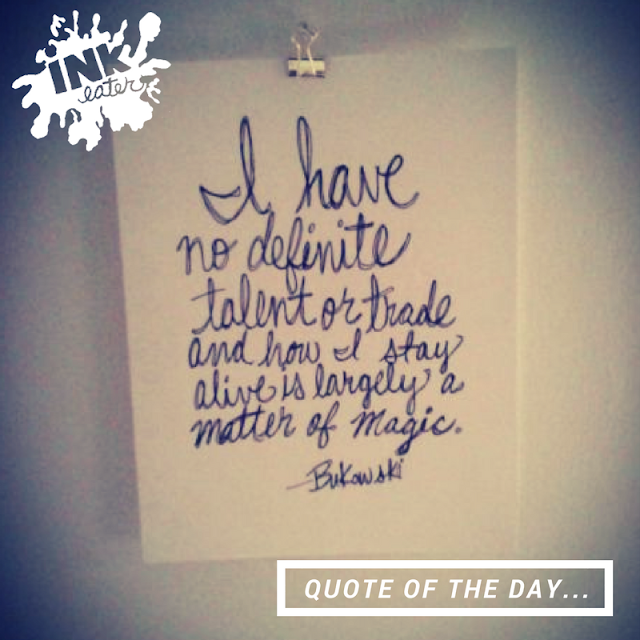 INK
eater
I have
no definite
talent or trade
and how I stay
alive is largely a
matter of magic.
—Bukowski
QUOTE OF THE DAY...